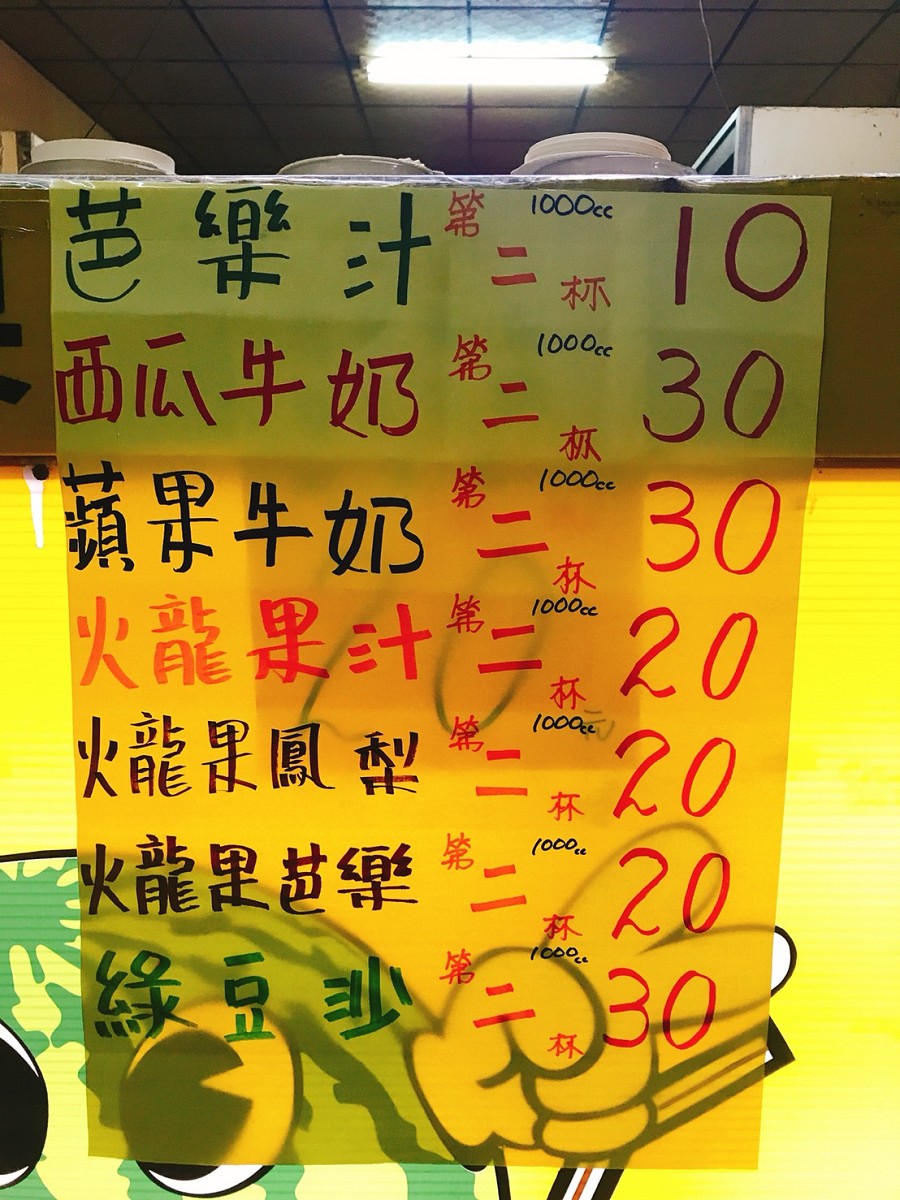 芭樂汁 第二杯 1000cc 10
西瓜牛奶 第二杯 1000cc 30
蘋果牛奶 第二杯 1000cc 30
火龍果汁 第二杯 1000cc 20
火龍果鳳梨 第二杯 1000cc 20
火龍果芭樂 第二杯 1000cc 20
綠豆沙 第二杯 1000cc 30